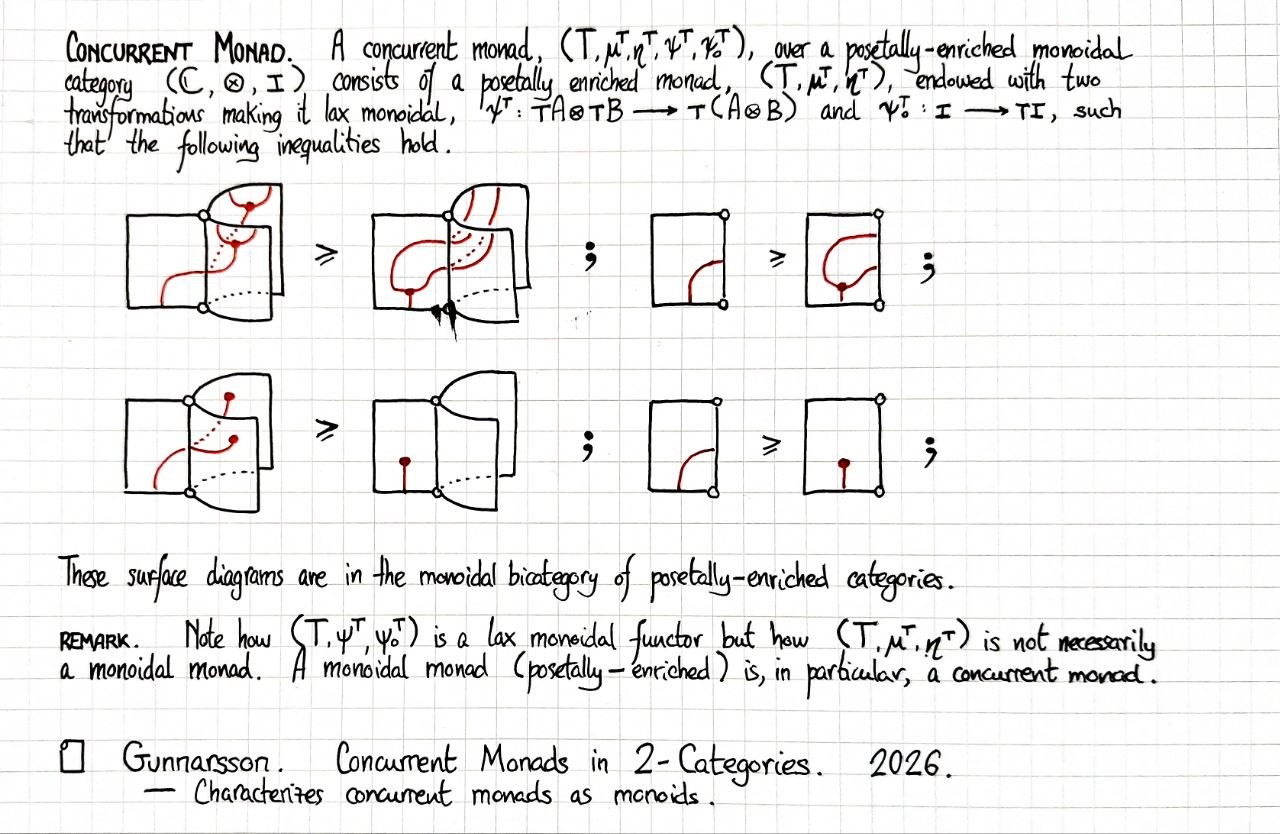 CONCURRENT MONAD. A concurrent monad, (T, μᵀ, ηᵀ, ψᵀ, ψ₀ᵀ), over a posetally-enriched monoidal
category (ℂ, ⊗, I) consists of a posetally enriched monad, (T, μᵀ, ηᵀ), endowed with two
transformations making it lax monoidal, ψᵀ : TA⊗TB ⟶ T(A⊗B) and ψ₀ᵀ : I ⟶ TI, such
that the following inequalities hold.
⩾ ; ⩾ ;
⩾ ; ⩾ ;
These surface diagrams are in the monoidal bicategory of posetally-enriched categories.
REMARK. Note how (T, ψᵀ, ψ₀ᵀ) is a lax monoidal functor but how (T, μᵀ, ηᵀ) is not necessarily
a monoidal monad. A monoidal monad (posetally-enriched) is, in particular, a concurrent monad.
Gunnarsson. Concurrent Monads in 2-Categories. 2026.
— Characterizes concurrent monads as monoids.